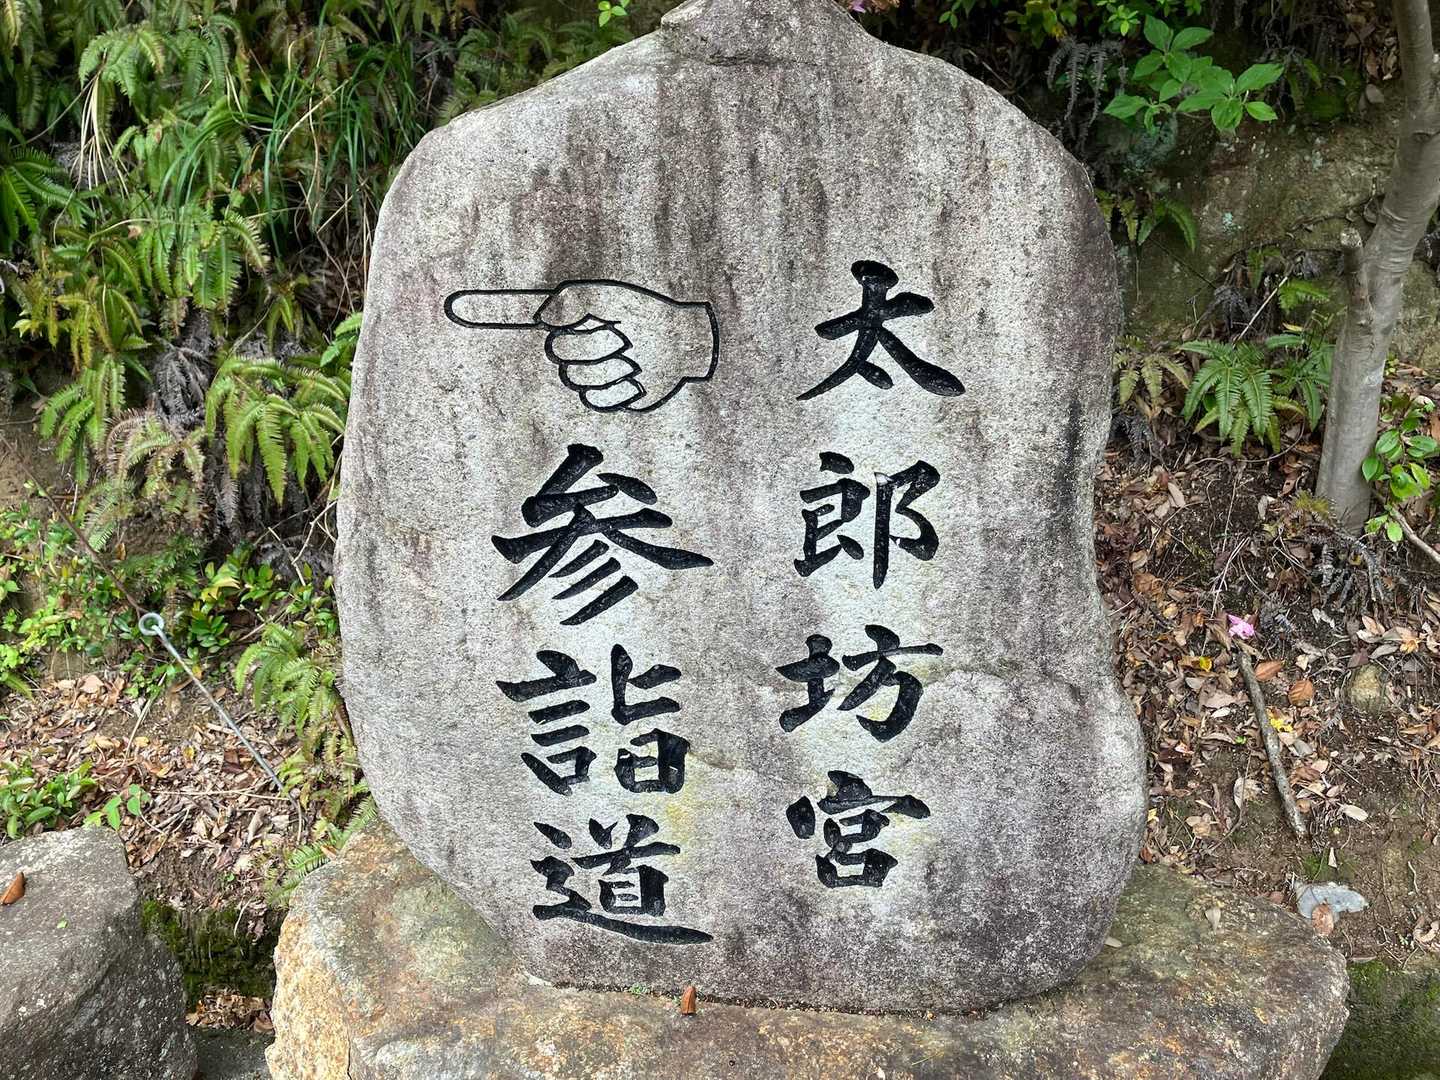 太郎坊宮
参詣道